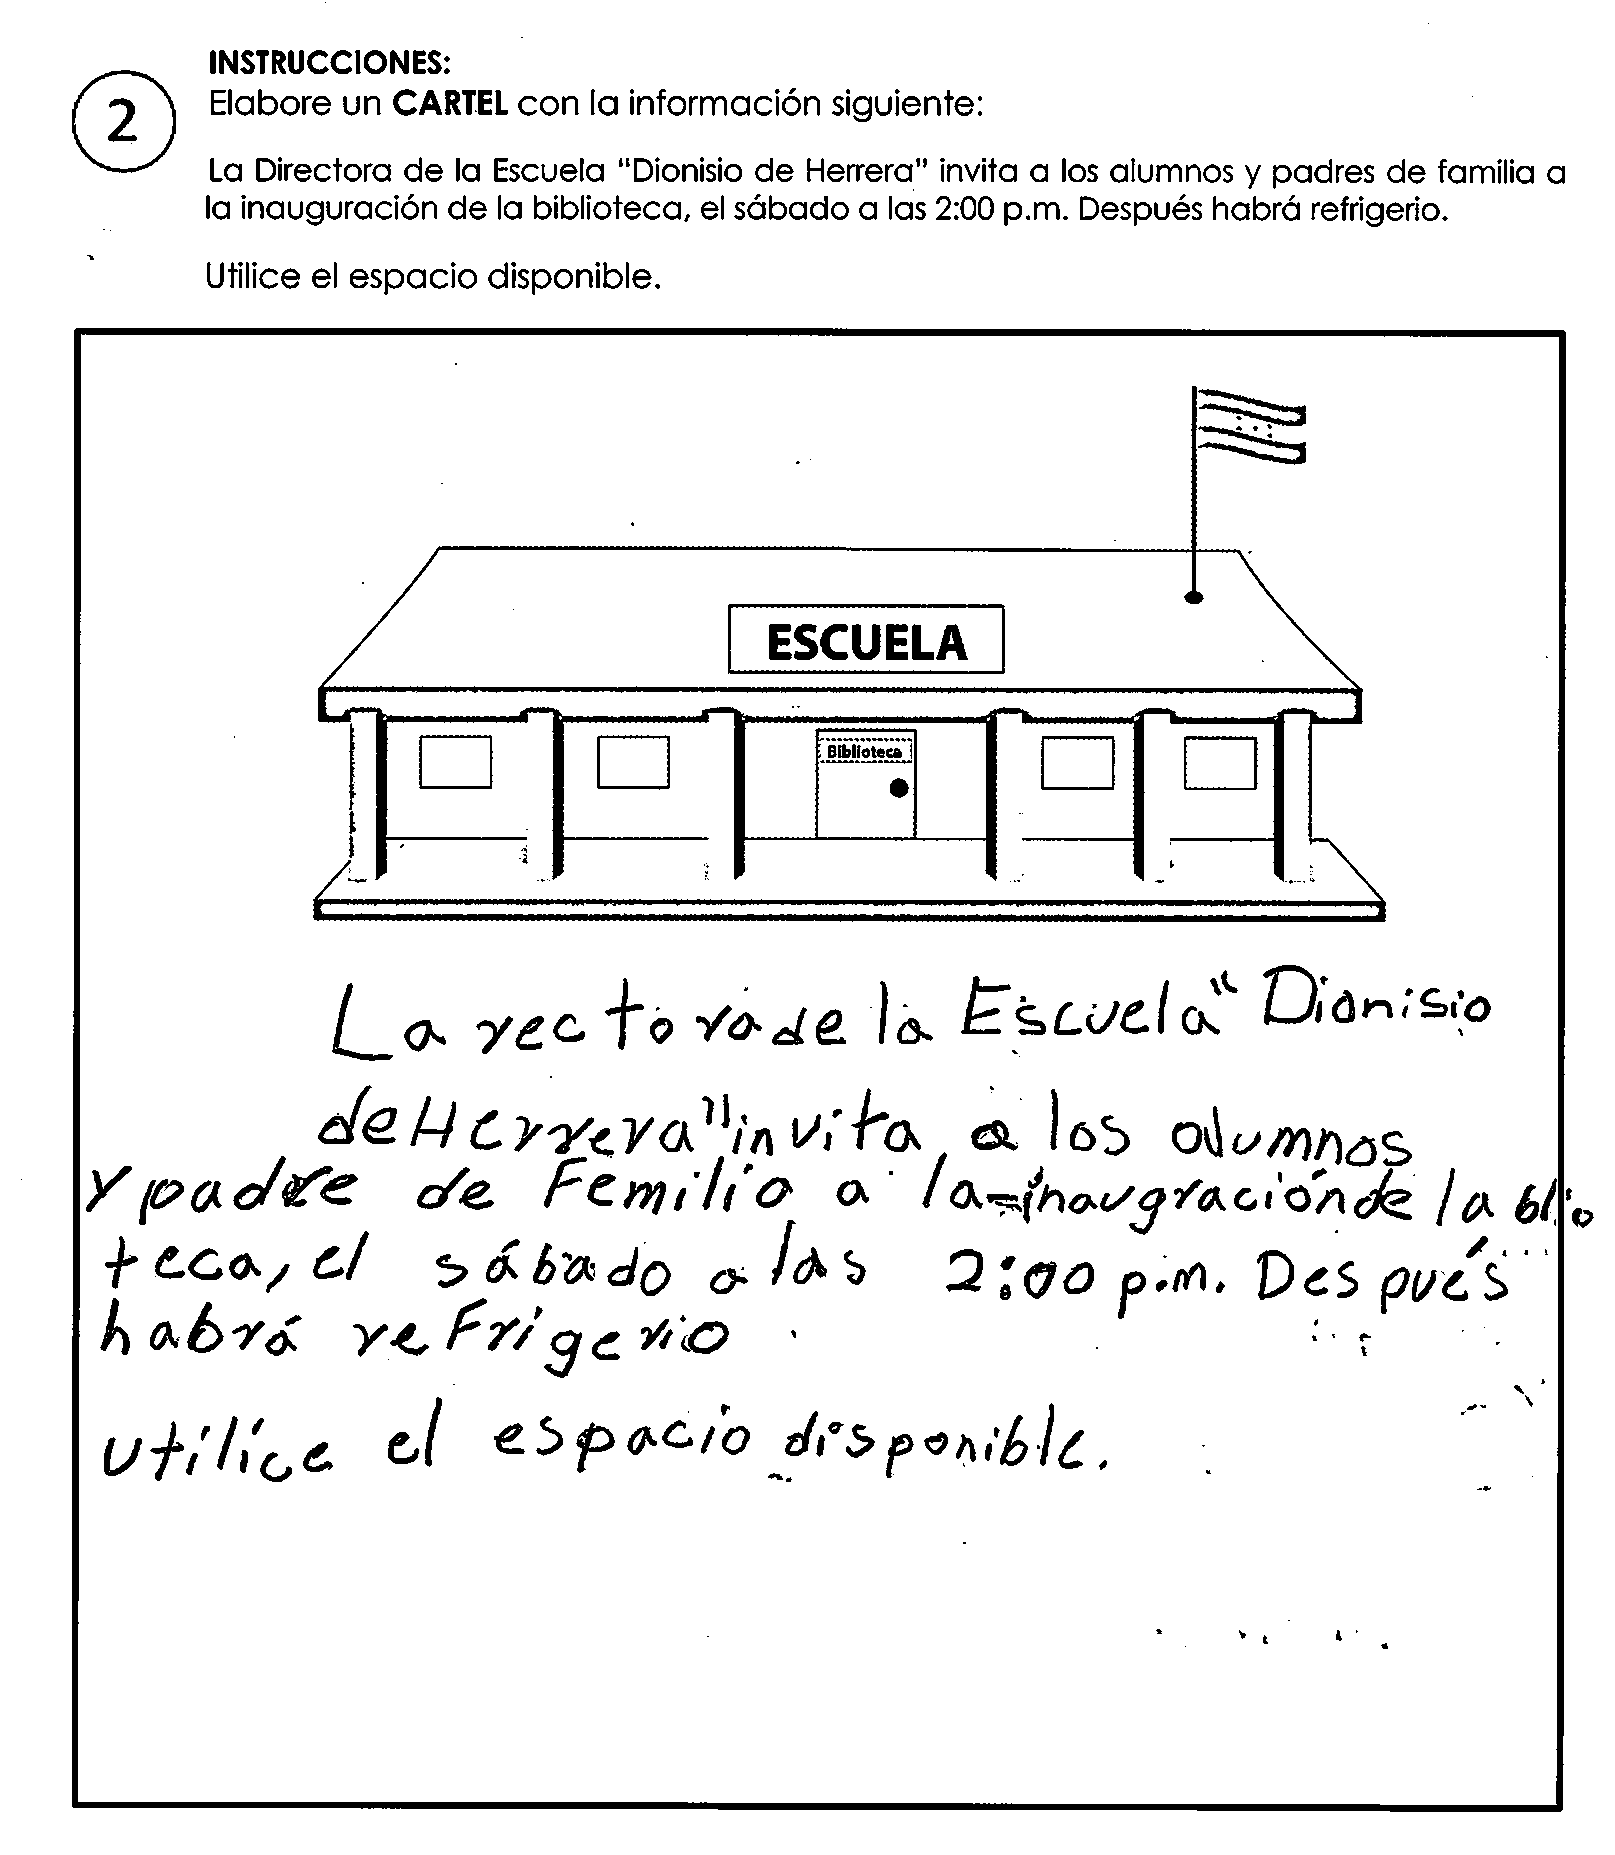 INSTRUCCIONES:
2
Elabore un CARTEL con la información siguiente:
La Directora de la Escuela "Dionisio de Herrera" invita a los alumnos y padres de familia a
la inauguración de la biblioteca, el sábado a las 2:00 p.m. Después habrá refrigerio.
Utilice el espacio disponible.
ESCUELA
Biblioteca
La rectora de la Escuela "Dionisio
de Herrera" invita a los alumnos
y padre de Femilio a la inaugración de la blio
teca, el sábado a las 2:00 p.m. Después
habrá reFrigerio
utilice el espacio disponible.